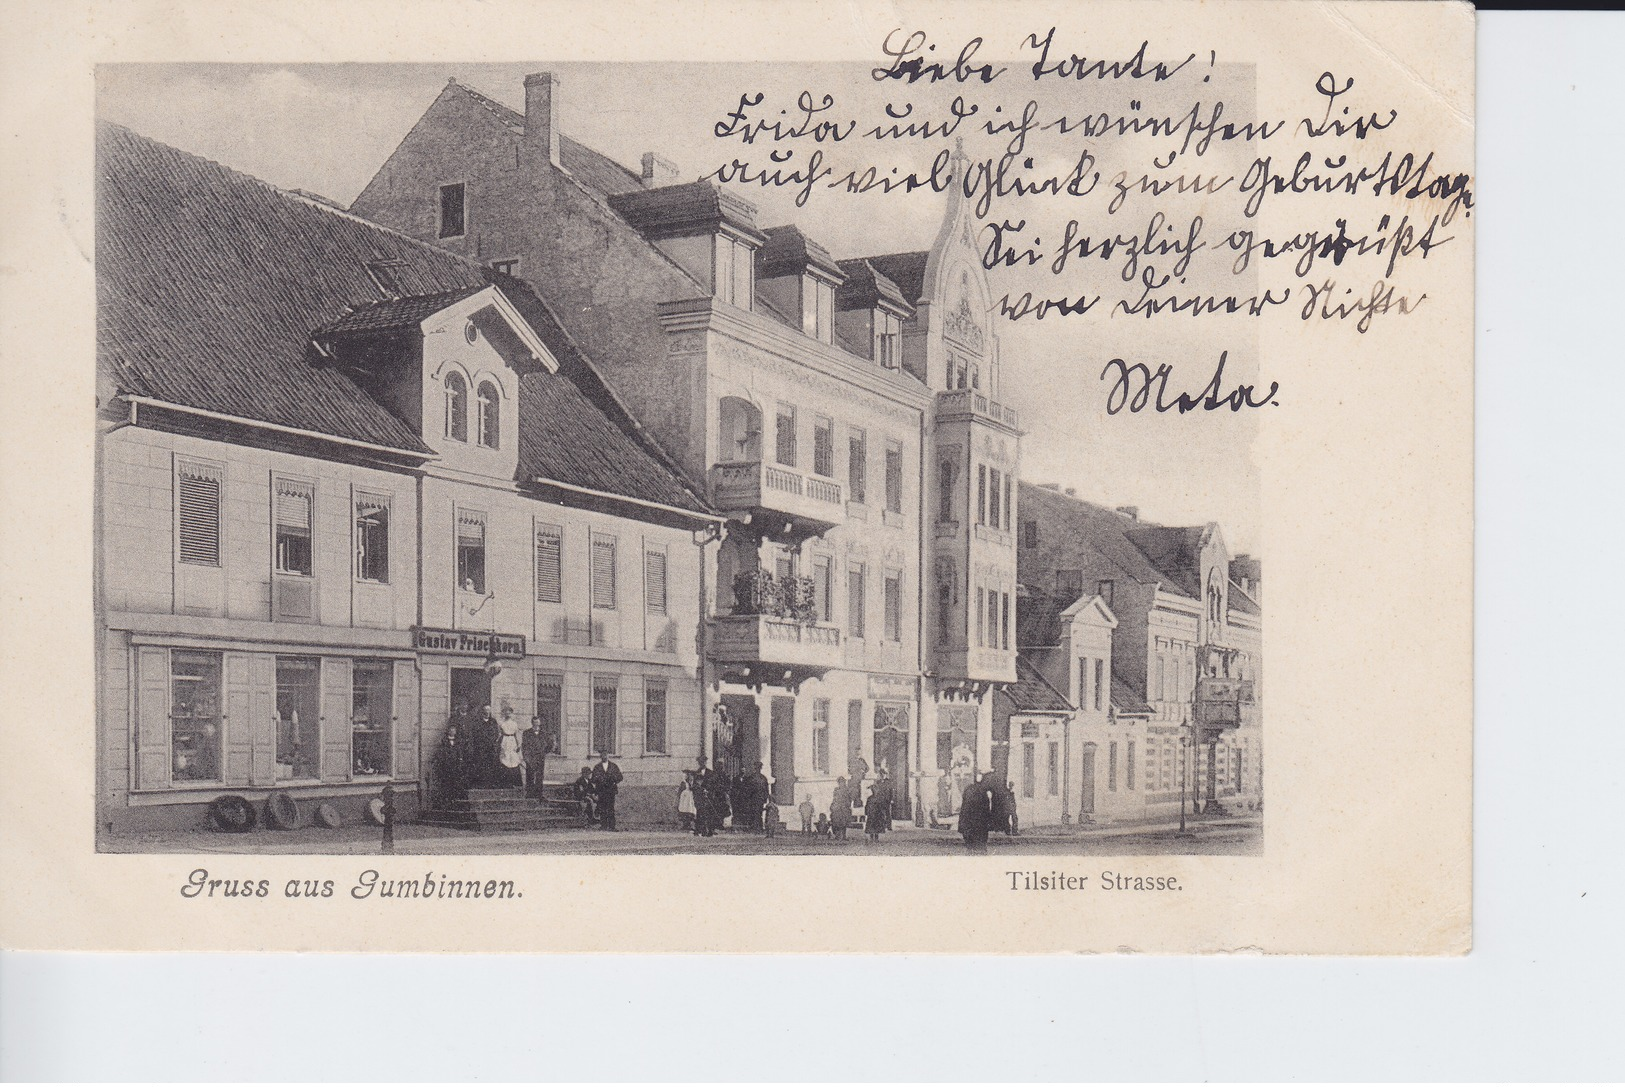 Liebe Tante!
Frida und ich wünschen Dir
auch viel Glück zum Geburtstage.
Sei herzlich gegrüßt
von Deiner Nichte
Meta.
Gustav Frischkorn.
Gruss aus Gumbinnen.
Tilsiter Strasse.